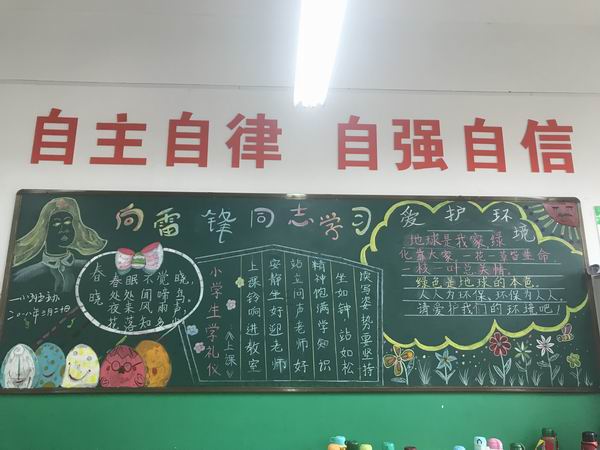 自主自律 自强自信
向雷锋同志学习
春晓
春眠不觉晓，
处处闻啼鸟，
夜来风雨声，
花落知多
小学生学礼仪
《上课》
上课铃响进教室
安静坐好迎老师
站立问声老师好
精神饱满学知识
坐如钟 站如松
读写姿势要坚持
爱护环境
地球是我家,绿
化靠大家,一花一草皆生命,
一枝一叶总关情。
绿色是地球的本色。
人人为环保,环保为人人。
请爱护我们的环境吧!